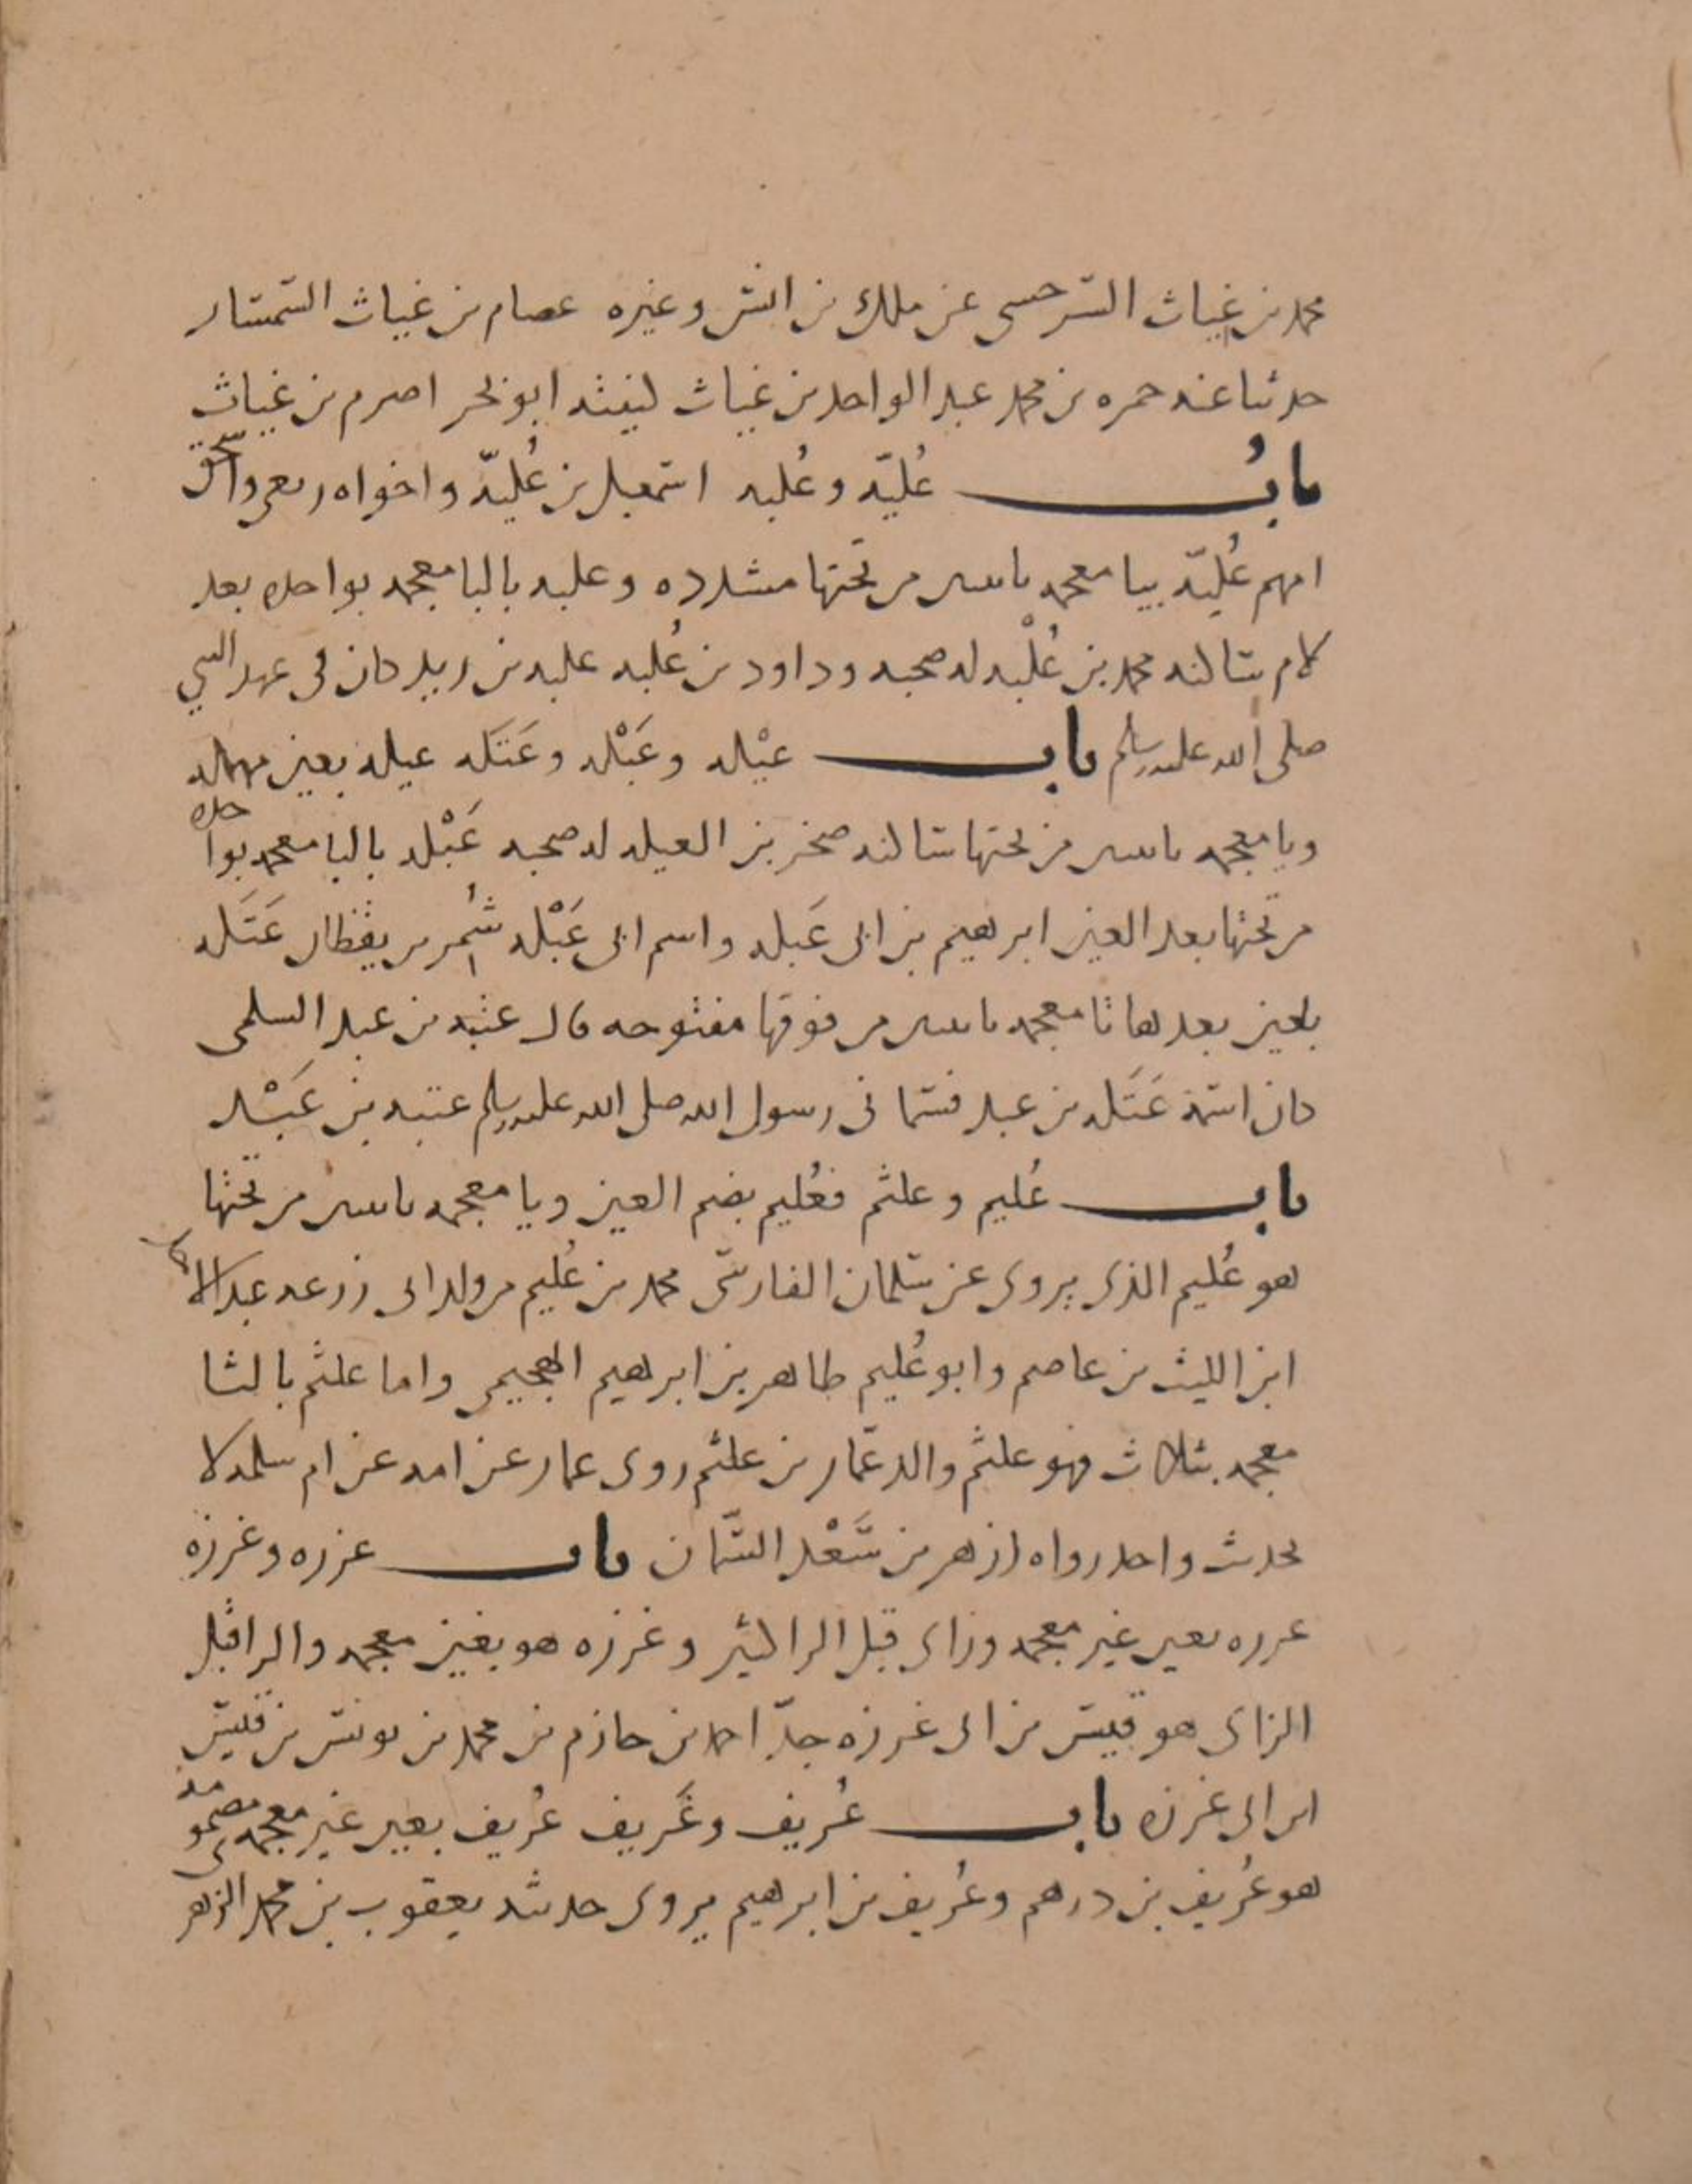 محمد بن غياث السرخسي عن ملك بن انس وغيره عصام بن غياث السمسار
حدثنا عنه حمزه بن محمد عبد الواحد بن غياث كنيته ابو بحر اصرم بن غياث
باب عُليّة وعُلبه اسمعيل بن عُليّة واخواه ربعي واسحق
امهم عُليّة بيا معجمه باثنين من تحتها مشدده وعلبه بالبا معجمه بواحده بعد
لام ساكنه محمد بن عُلْبه له صحبه وداود بن عُلبه علبه بن زيد كان في عهد النبي
صلى الله عليه وسلم باب عيْله وعَبْله وعَتَله عيله بعين مهمله
ويا معجمه باثنين من تحتها ساكنه صخر بن العيله له صحبه عَبْله بالبا معجمه بواحده
من تحتها بعد العين ابرهيم بن ابي عَبله واسم ابي عَبْله شُمر بن يقظان عَتَله
بعين بعدها تا معجمه باثنين من فوقها مفتوحه قال عتبه بن عبد السلمي
كان اسمه عَتَله بن عبد فسماني رسول الله صلى الله عليه وسلم عتبه بن عَبْد
باب عُليم وعلثم فعُليم بضم العين ويا معجمه باثنين من تحتها
هو عُليم الذي يروي عن سلمان الفارسي محمد بن عُليم من ولد ابي زرعه
ابن الليث بن عاصم وابو عُليم طاهر بن ابرهيم الهجيمي واما علثم بالثا
معجمه بثلاث فهو علثم والد عمّار بن علثم روى عمار عن امه عن ام سلمه لا
يحدث واحد رواه ازهر بن سَعْد السّمان باب عزره وغرزه
عزره بعين غير معجمه وزاي قبل الرا كثير وغرزه هو بغين معجمه والرا قبل
الزاي هو قيس بن ابي غرزه جدّ احمد بن حازم بن محمد بن يونس بن قيس
ابن ابي غرزه باب عُريف وغَريف عُريف بعين غير معجمه مضمومه
هو عُريف بن درهم وعُريف بن ابرهيم يروي حديثه يعقوب بن محمد الزهري